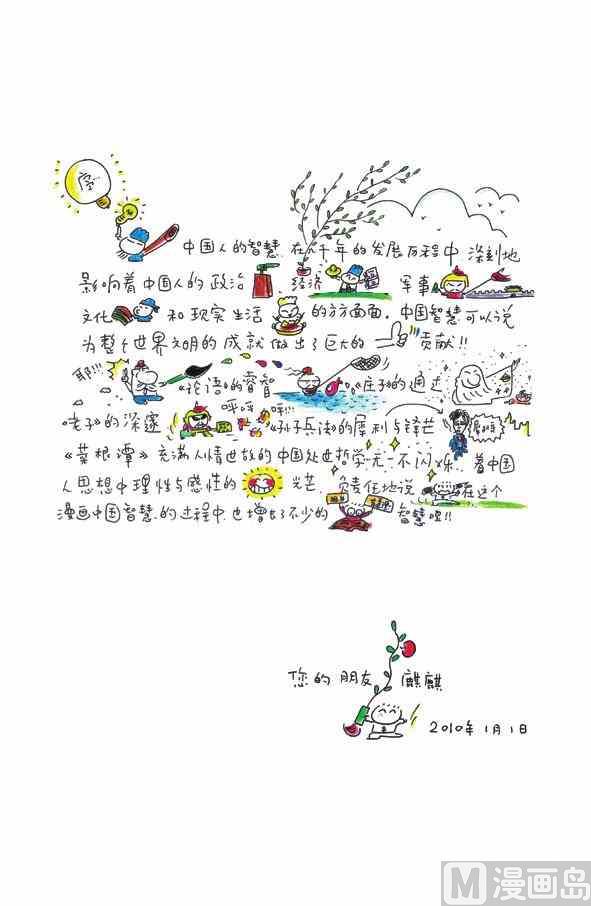 中国人的智慧 在几千年的发展历程中 深刻地
影响着中国人的政治 经济 军事
文化 和现实生活 的方方面面,中国智慧可以说
为整个世界文明的成就做出了巨大的 贡献!!
耶!!! 《论语》的睿智 《庄子》的通达
《老子》的深邃 呼呼呼!!! 《孙子兵法》的犀利与锋芒
《菜根谭》充满人情世故的中国处世哲学无一不闪烁 着中国
人思想中理性与感性的 光芒 负责任地说 在这个
漫画中国智慧的过程中也增长了不少的 智慧哩!!
您的朋友 麒麒
2010年1月1日
M 漫画岛